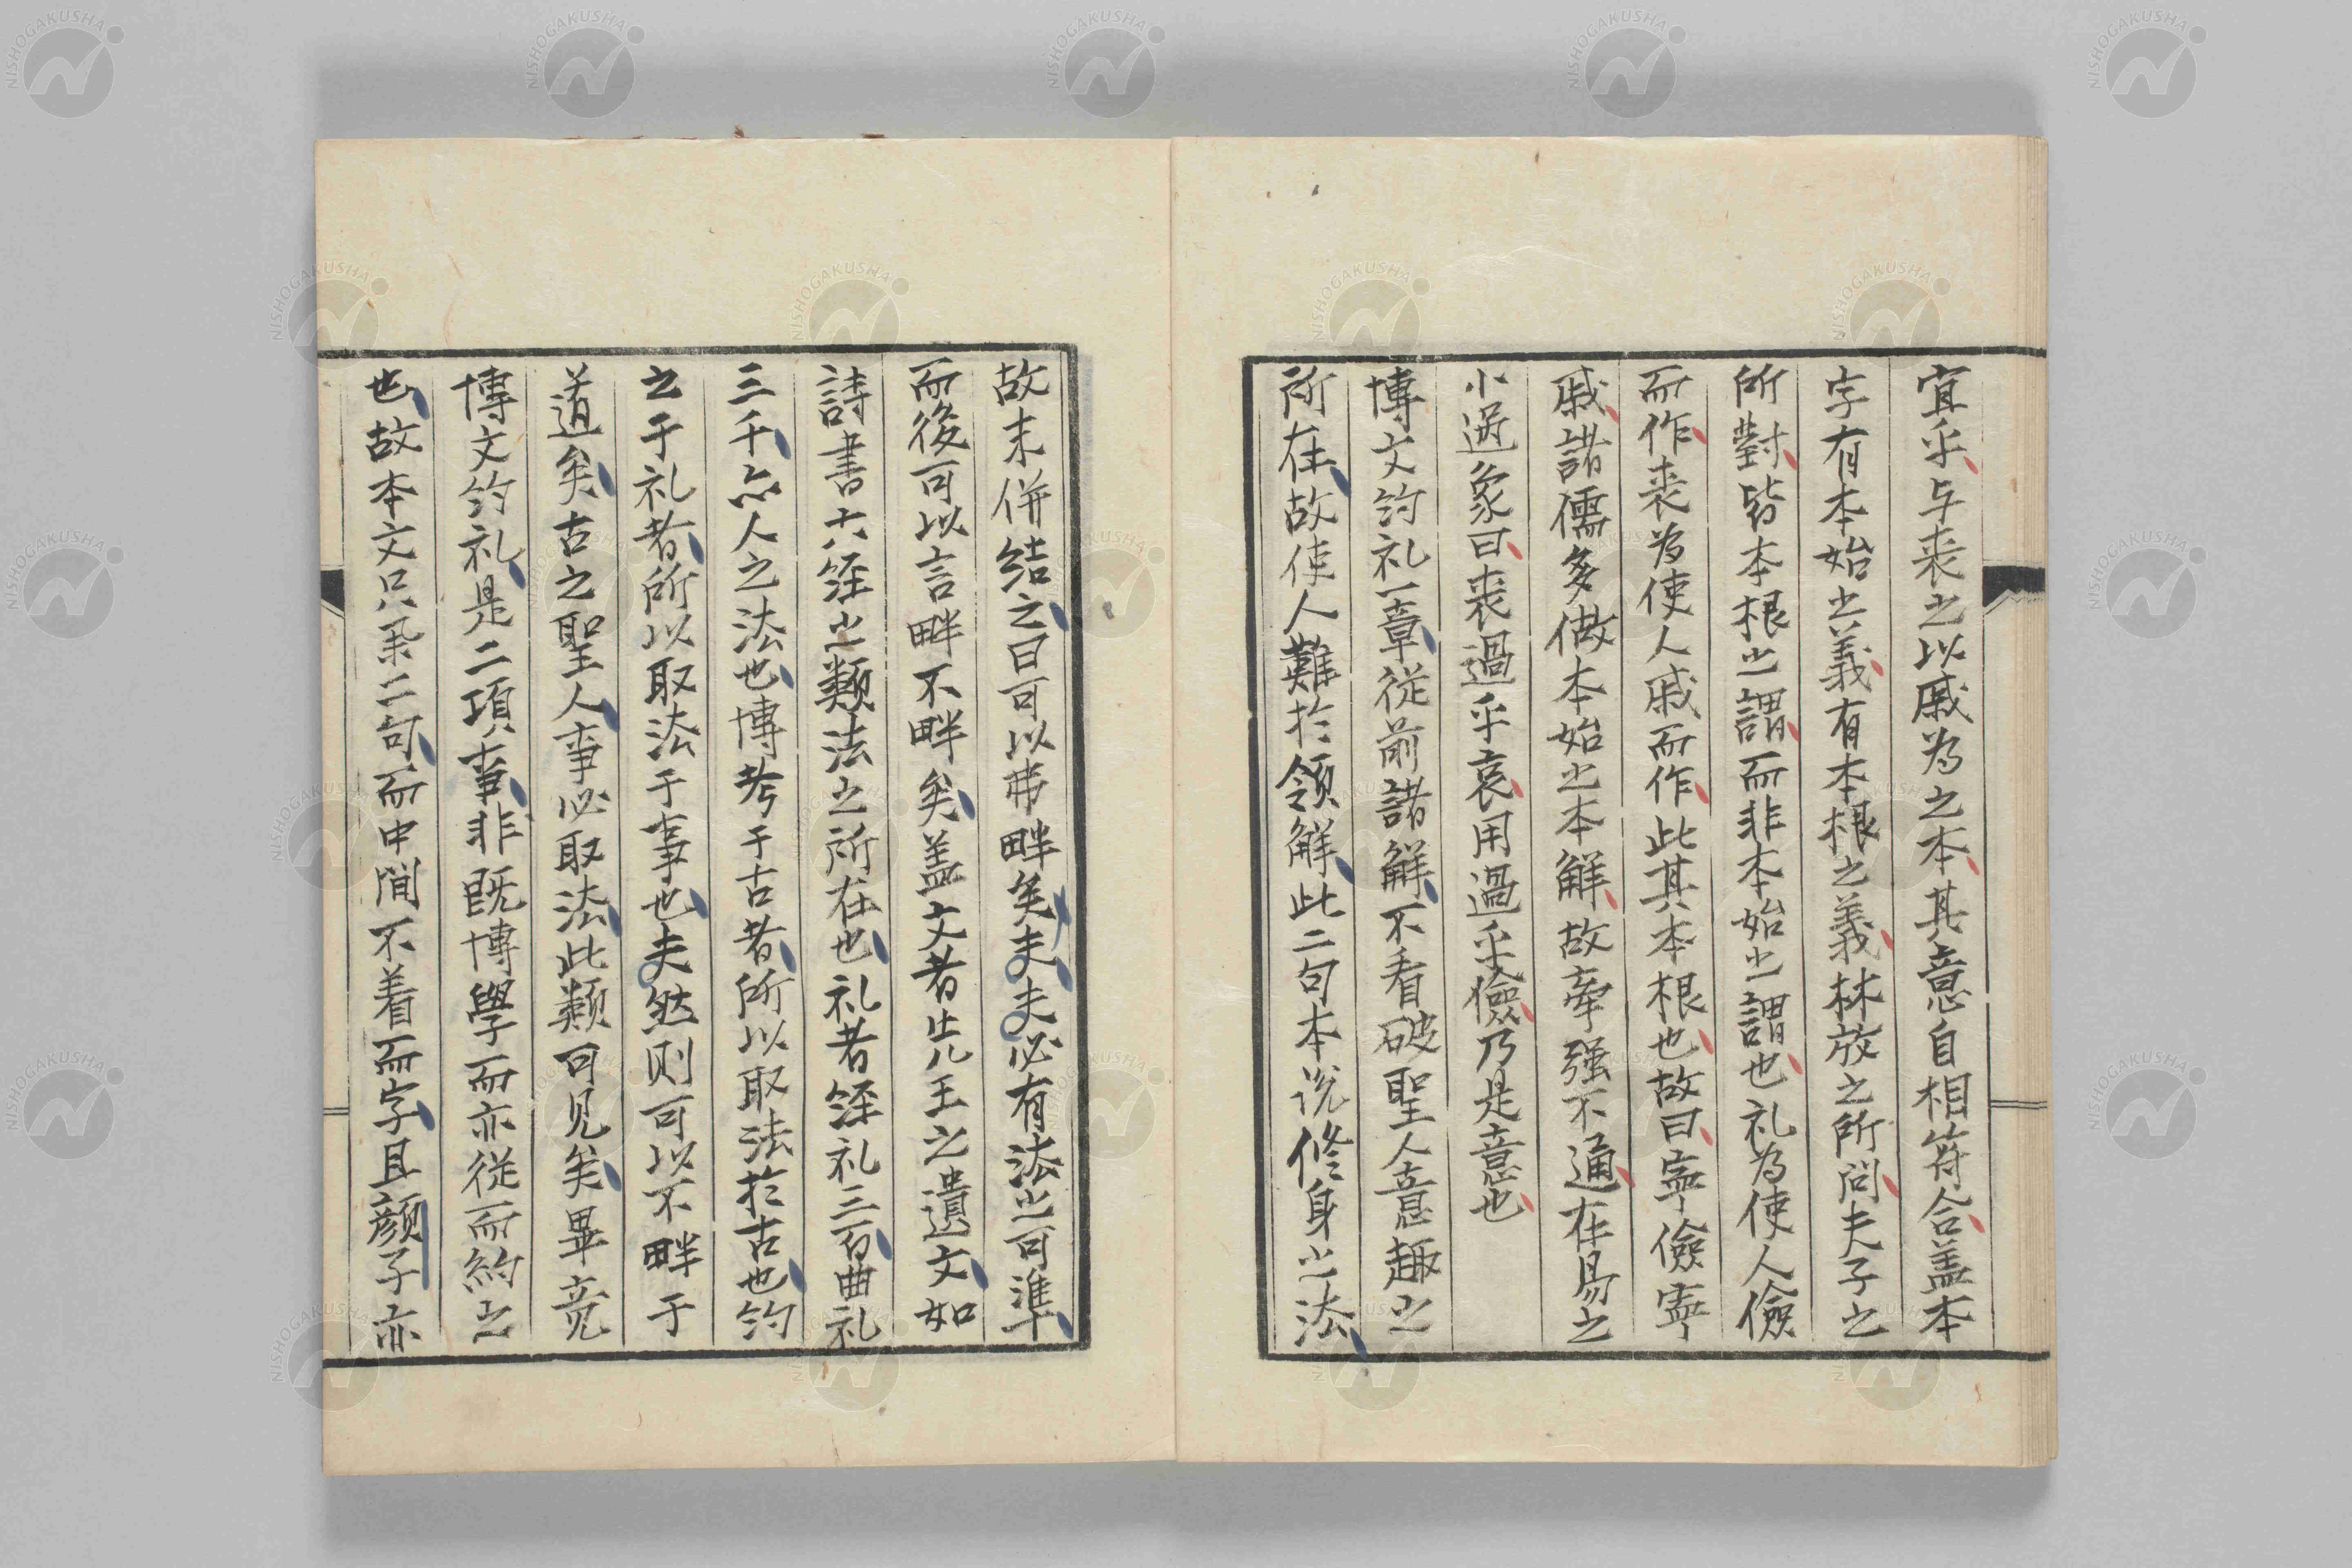 宜乎与喪之以戚為之本其意自相符合盖本
字有本始之義有本根之義林放之所问夫子之
所對皆本根之謂而非本始之謂也礼為使人儉
而作喪為使人戚而作此其本根也故曰寧儉寧
戚諸儒多做本始之本解故牽强不通在易之
小過象曰喪過乎哀用過乎儉乃是意也
博文約礼一章従前諸解不看破聖人意趣之
所在故使人難於領解此二句本说修身之法
故末併結之曰可以弗畔矣夫夫必有法之可準
而後可以言畔不畔矣盖文者先王之遺文如
詩書六経之類法之所在也礼者経礼三百曲礼
三千亦人之法也博考于古者所以取法於古也約
之于礼者所以取法于事也夫然则可以不畔于
道矣古之聖人事必取法此類可见矣畢竟
博文約礼是二項事非既博學而亦従而約之
也故本文只用二句而中间不着而字且顔子亦
NISHOGAKUSHA